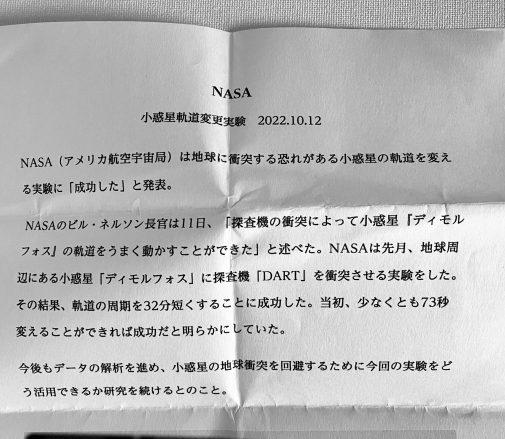 NASA
小惑星軌道変更実験 2022.10.12
NASA（アメリカ航空宇宙局）は地球に衝突する恐れがある小惑星の軌道を変え
る実験に「成功した」と発表。
NASAのビル・ネルソン長官は11日、「探査機の衝突によって小惑星『ディモル
フォス』の軌道をうまく動かすことができた」と述べた。NASAは先月、地球周
辺にある小惑星「ディモルフォス」に探査機「DART」を衝突させる実験をした。
その結果、軌道の周期を32分短くすることに成功した。当初、少なくとも73秒
変えることができれば成功だと明らかにしていた。
今後もデータの解析を進め、小惑星の地球衝突を回避するために今回の実験をど
う活用できるか研究を続けるとのこと。